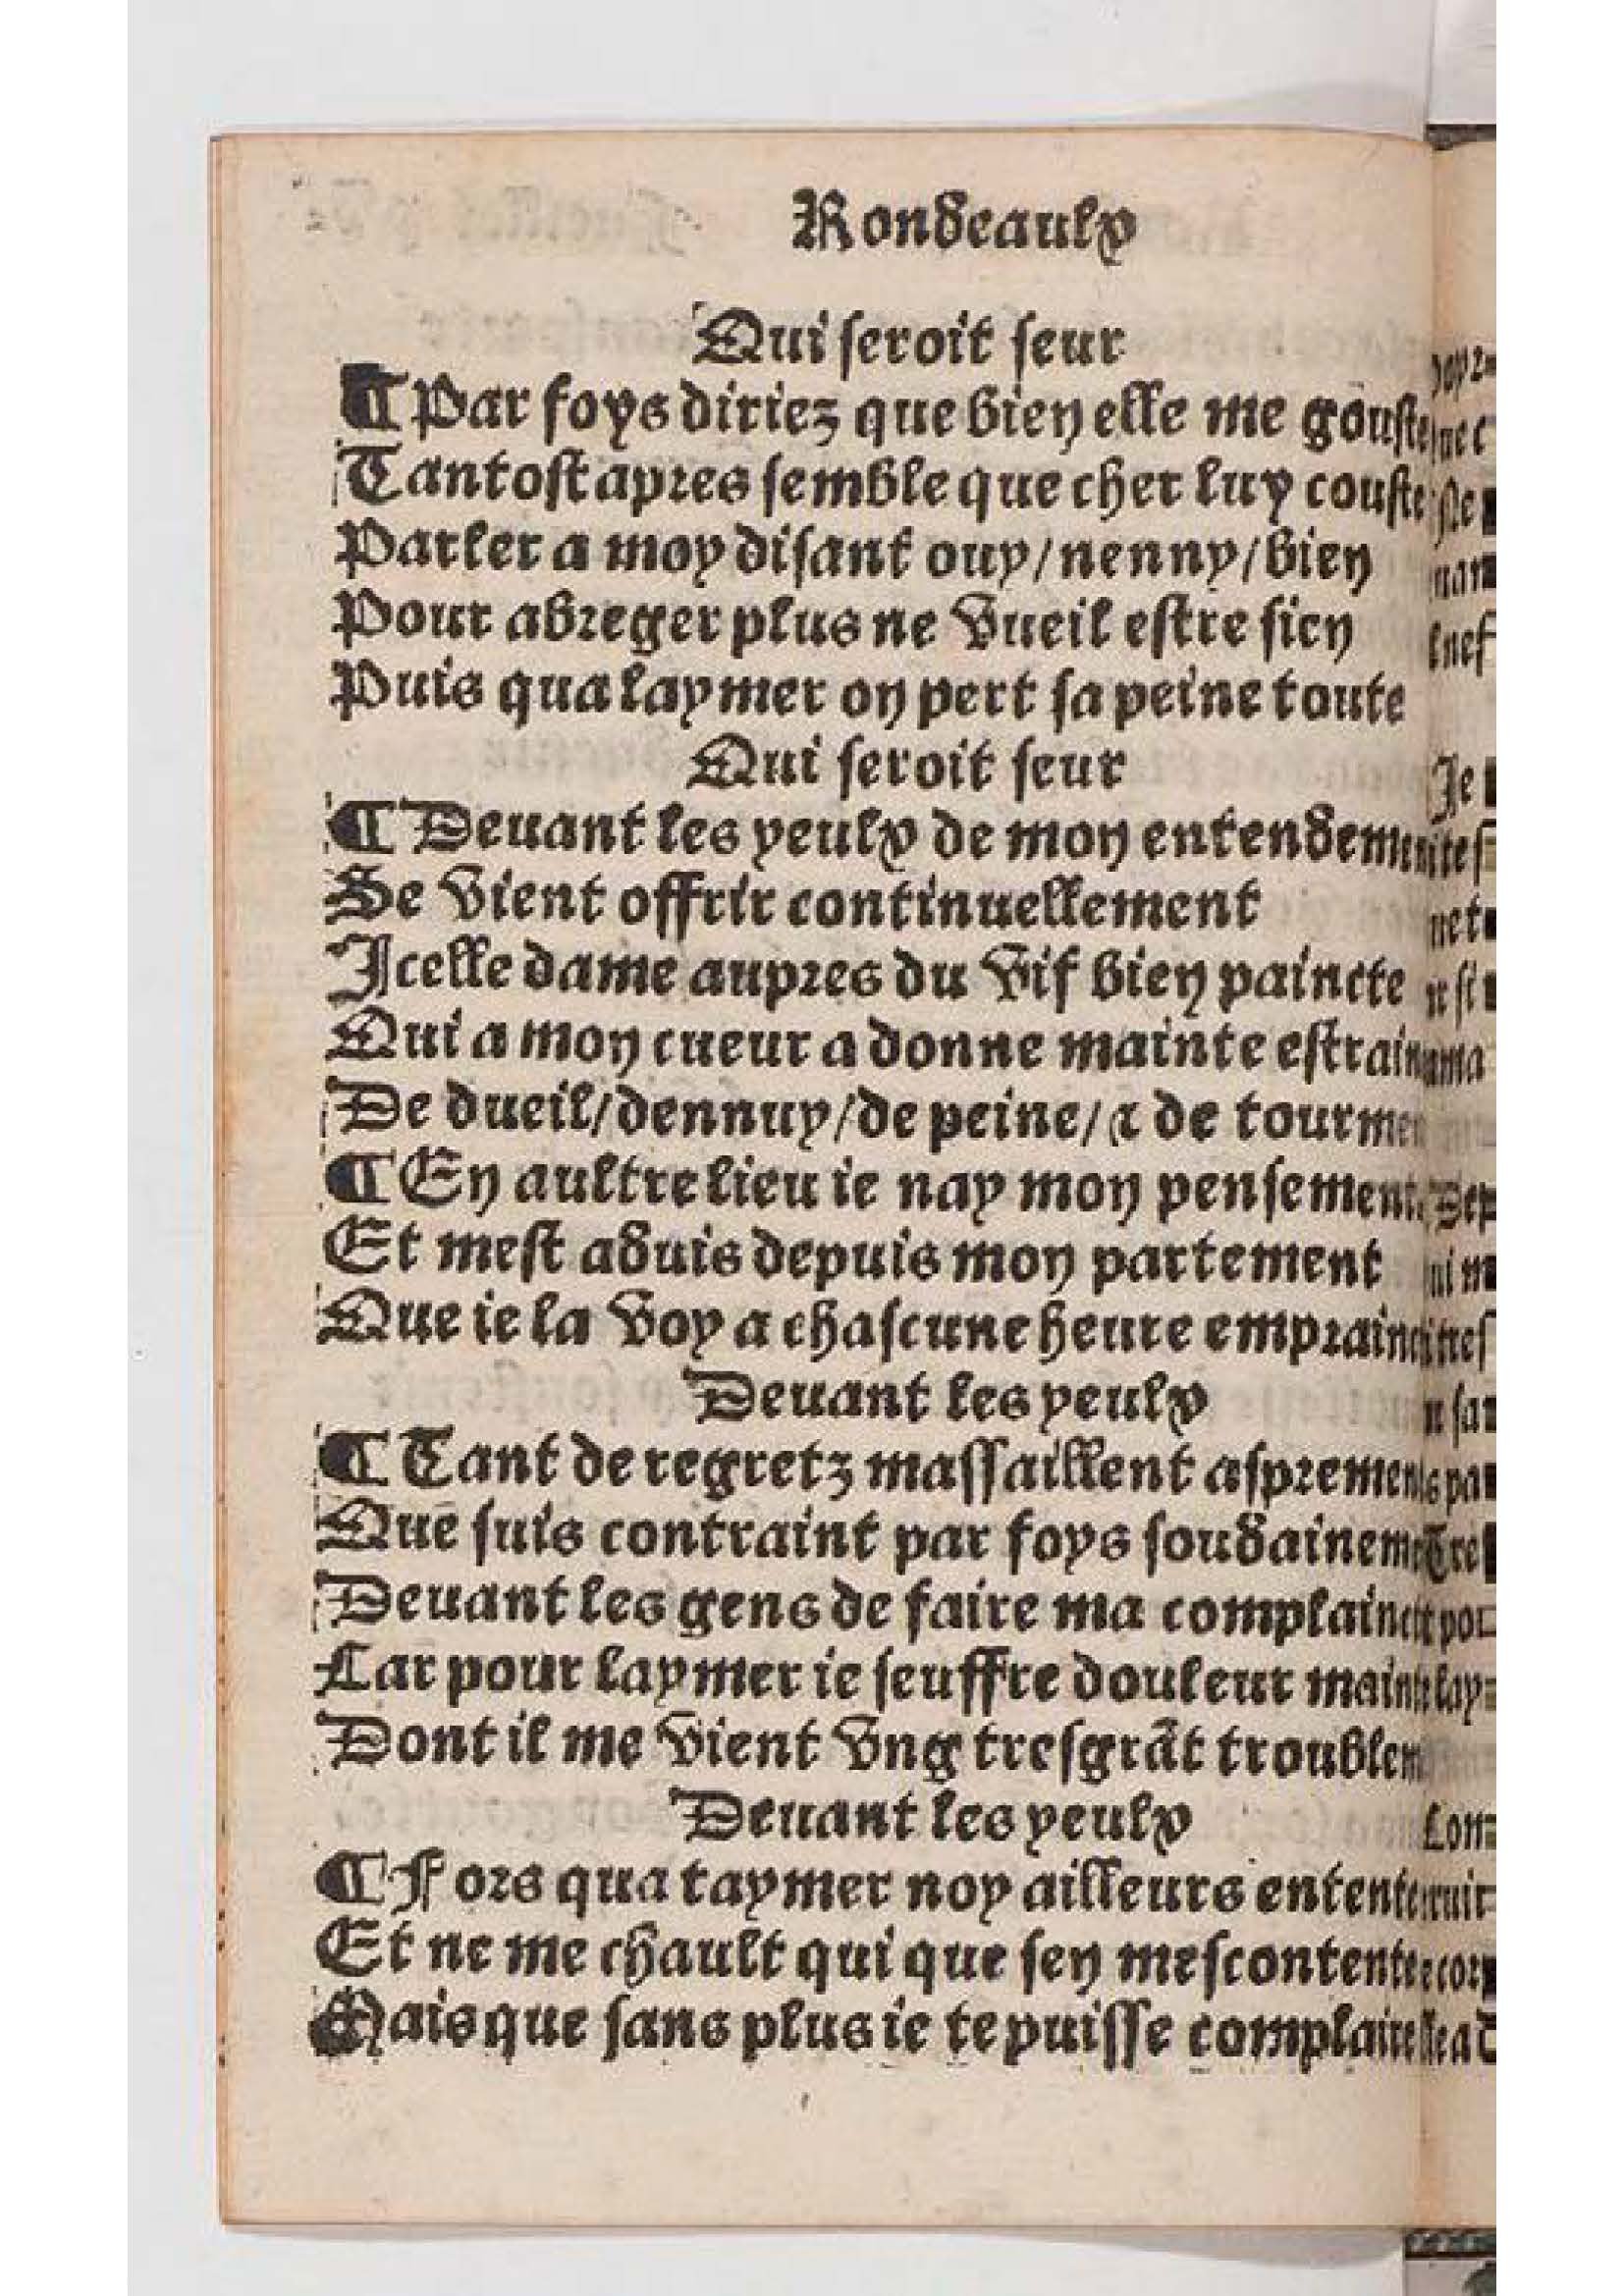 Rondeaulx
Qui seroit seur
¶ Par foys diriez que bien elle me gouste
Tantost apres semble que cher luy couste
Parler a moy disant ouy/nenny/bien
Pour abreger plus ne vueil estre sien
Puis qua laymer on pert sa peine toute
Qui seroit seur
¶ Deuant les yeulx de mon entendem
Se vient offrir continuellement
Icelle dame aupres du vif bien paincte
Qui a mon cueur a donne mainte estrain
De dueil/dennuy/de peine/& de tourme
¶ En aultre lieu ie nay mon pensement
Et mest aduis depuis mon partement
Que ie la voy a chascune heure emprainc
Deuant les yeulx
¶ Tant de regretz massaillent aspremen
Que suis contraint par foys soudainem
Deuant les gens de faire ma complainc
Car pour laymer ie seuffre douleur maint
Dont il me vient vng tresgrãt troublem
Deuant les yeulx
¶ Fors qua taymer noy ailleurs entente
Et ne me chault qui que sen mescontente
Mais que sans plus ie te puisse complaire